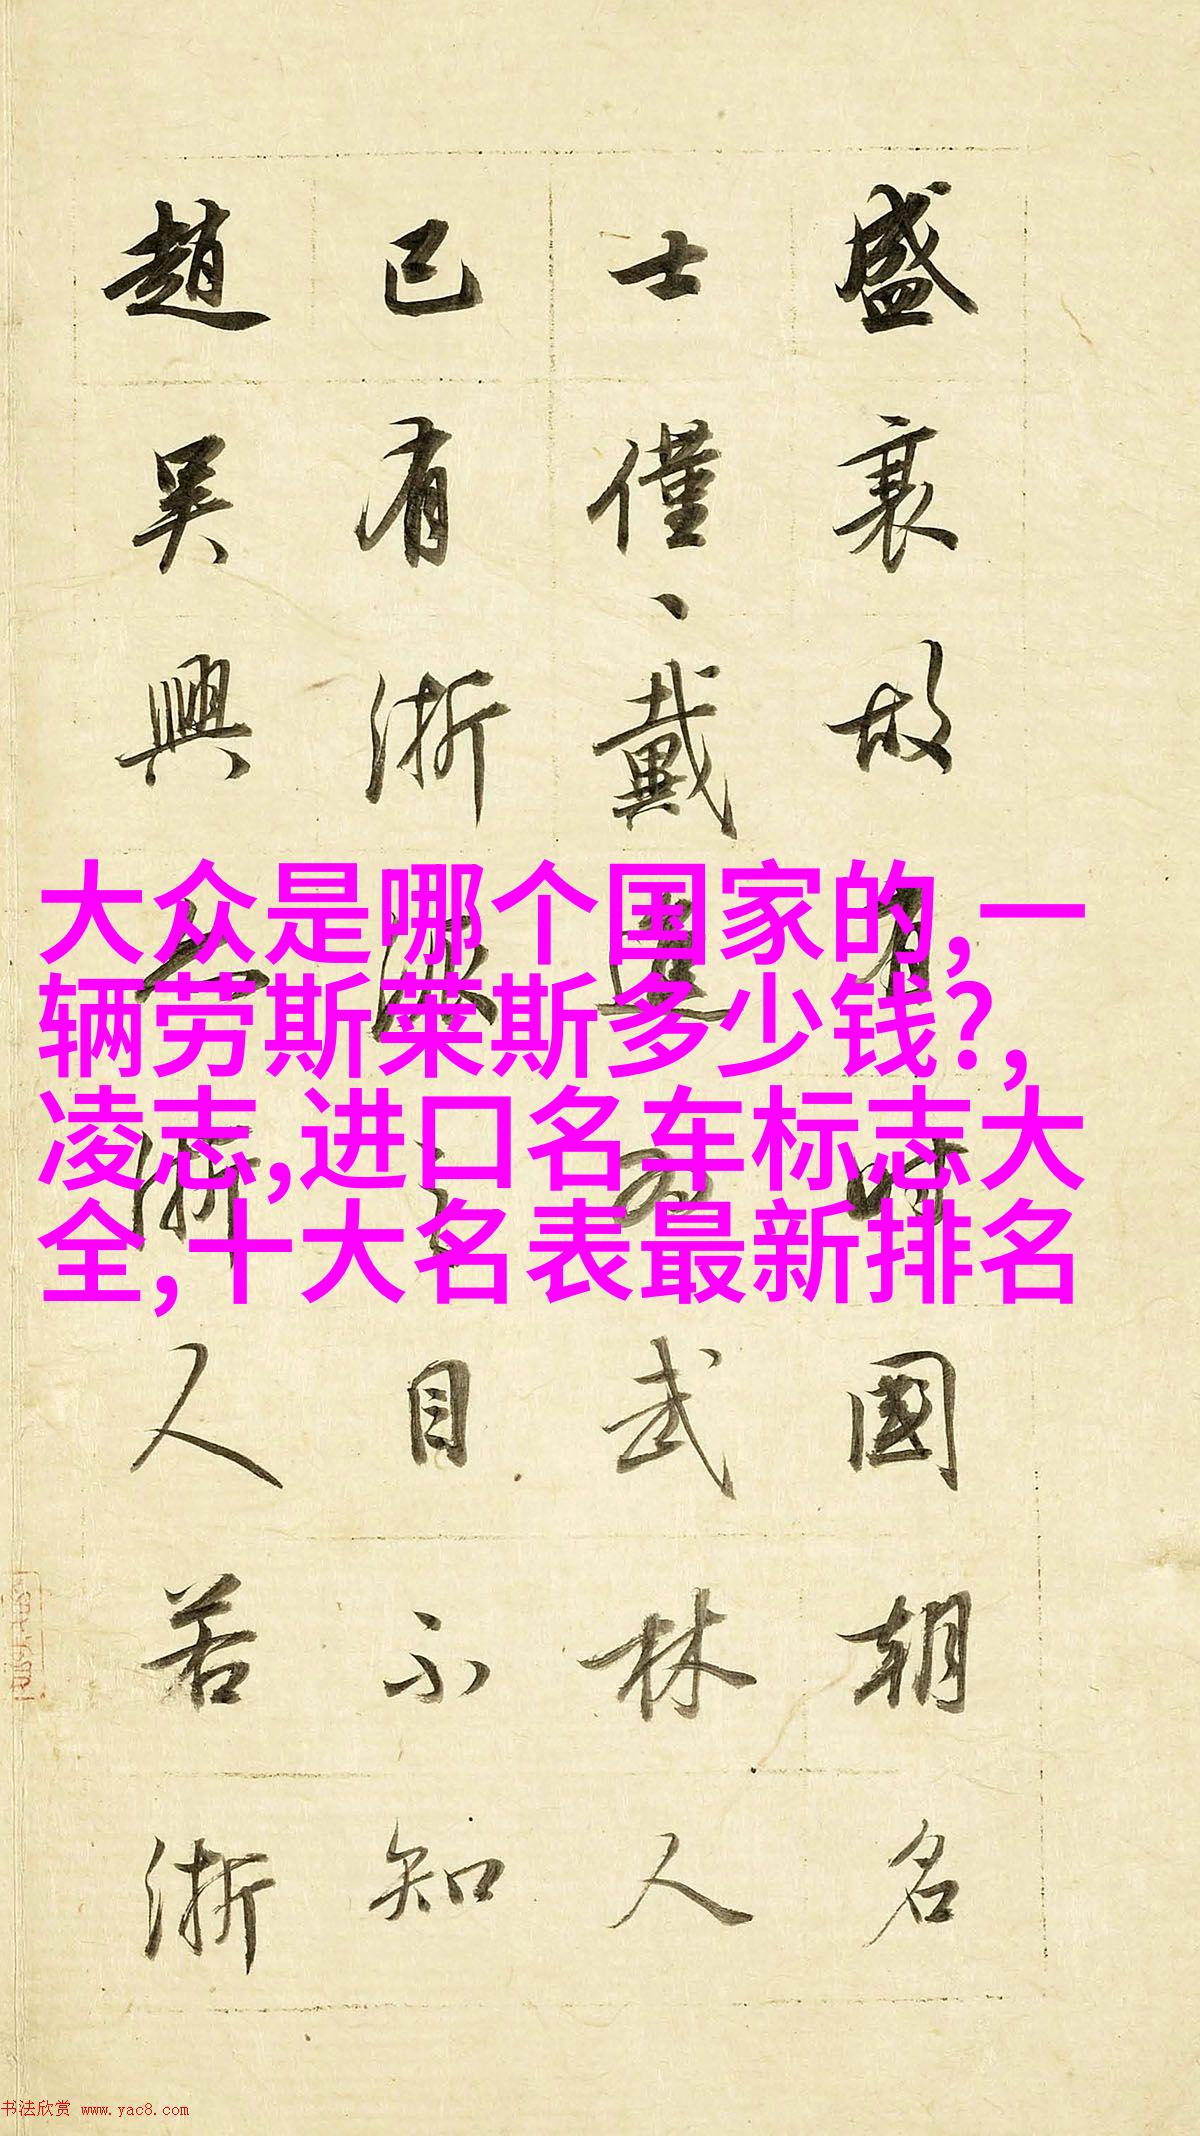 盛衰故有時國朝名
士僅、戴進為武林人
已有浙派之目不知
趙吳興亦浙人若浙
大众是哪个国家的,一
辆劳斯莱斯多少钱?,
凌志,进口名车标志大
全,十大名表最新排名
书法欣赏 www.yac8.com